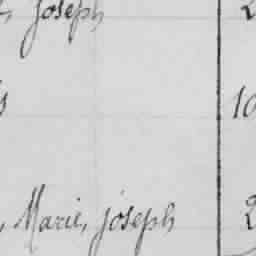 Joseph
10
, Marie, joseph 2